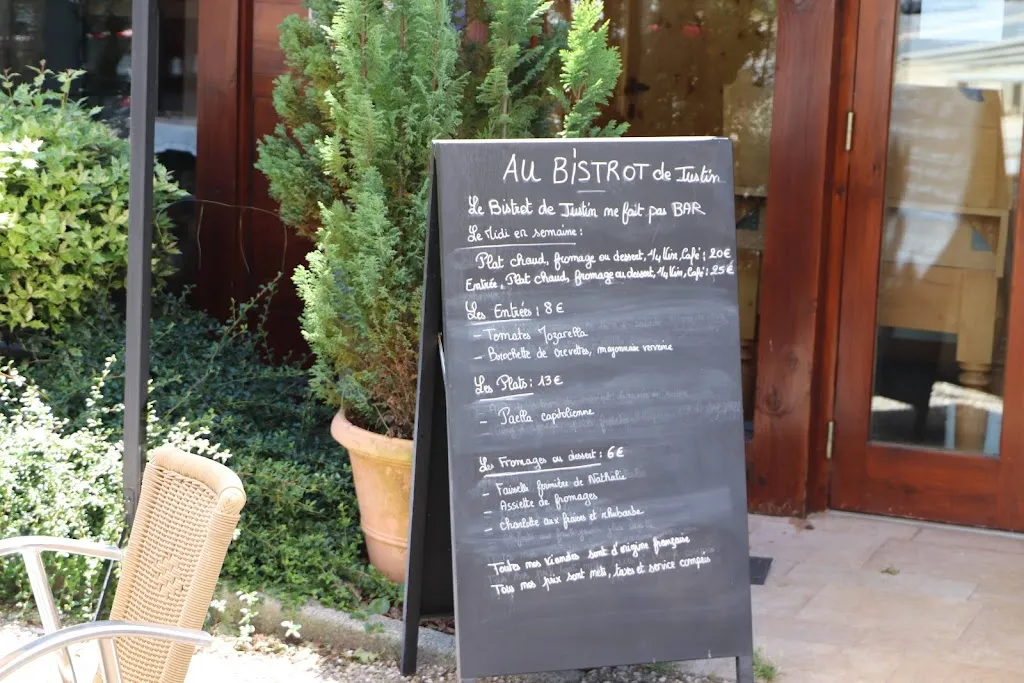 AU BISTROT de Justin
Le Bistrot de Justin ne fait pas BAR
Le Midi en semaine :
Plat chaud, fromage ou dessert, 1/4 Vin, Café : 20€
Entrée, Plat chaud, fromage ou dessert, 1/4 Vin, Café : 25€
Les Entrées : 8€
- Tomates Mozarella
- Brochette de crevettes, mayonnaise verveine
Les Plats : 13€
- Paella capitolienne
Les Fromages ou dessert : 6€
- Faisselle fermière de Nathalie
- Assiette de fromages
- Charlotte aux fraises et rhubarbe
Toutes nos viandes sont d'origine française
Tous nos prix sont nets, taxes et service compris